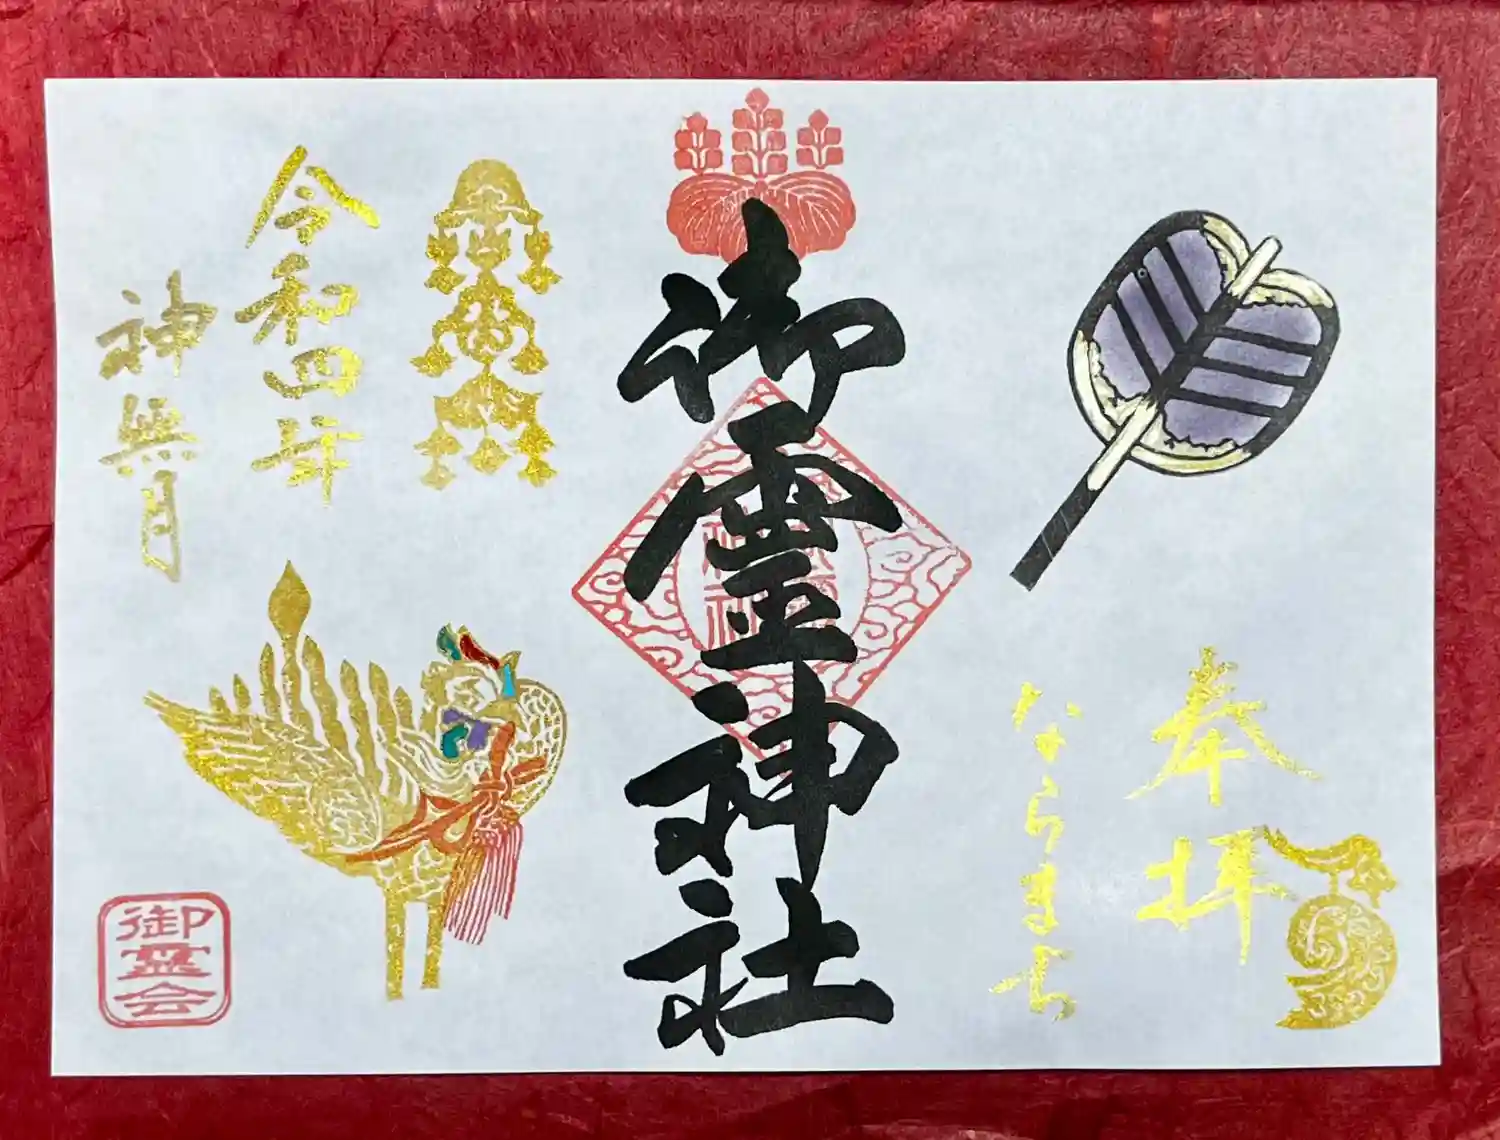 奉拝
ならまち
御霊神社
令和四年
神無月
御霊会